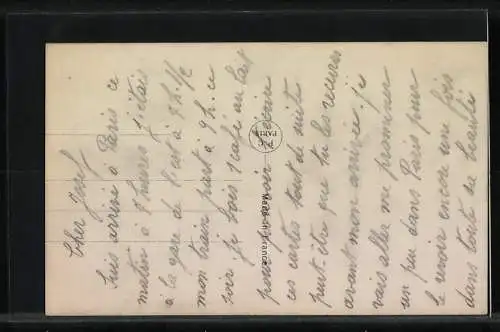 Cher Josef
Suis arrivé à Paris ce
matin à 7 heures j'étais
à la gare de l'est à 8 h. 1/2
mon train part à 9 h. ce
soir. je bois 1 café au lait
pour avoir écrire
ces cartes tout de suite
peut-être que tu les recevras
avant mon arrivée. je
vais aller me promener
un peu dans Paris pour
le revoir encore une fois
dans toute sa beauté
P&C
PARIS
Made in France